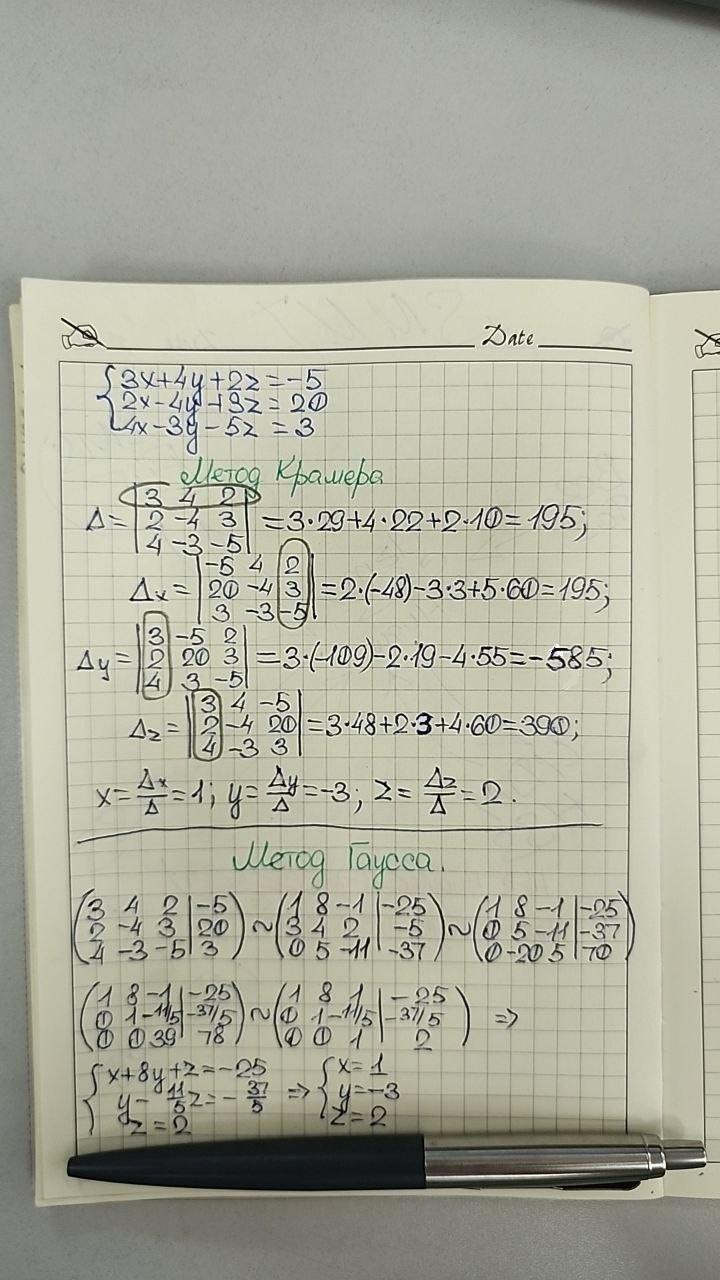 Date
3x+4y+2z=-5
2x-4y+3z=20
4x-3y-5z=3
Метод Крамера
Δ=|3 4 2; 2 -4 3; 4 -3 -5|=3·29+4·22+2·10=195;
Δx=|-5 4 2; 20 -4 3; 3 -3 -5|=2·(-48)-3·3+5·60=195;
Δy=|3 -5 2; 2 20 3; 4 3 -5|=3·(-109)-2·19-4·55=-585;
Δz=|3 4 -5; 2 -4 20; 4 -3 3|=3·48+2·3+4·60=390;
x=Δx/Δ=1; y=Δy/Δ=-3; z=Δz/Δ=2.
Метод Гаусса.
(3 4 2|-5; 2 -4 3|20; 4 -3 -5|3)~(1 8 -1|-25; 3 4 2|-5; 0 5 -11|-37)~(1 8 -1|-25; 0 5 -11|-37; 0 -20 5|70)
(1 8 -1|-25; 0 1 -11/5|-37/5; 0 0 39|78)~(1 8 1|-25; 0 1 -11/5|-37/5; 0 0 1|2) =>
x+8y+z=-25 => x=1
y-11/5z=-37/5 y=-3
z=2 z=2